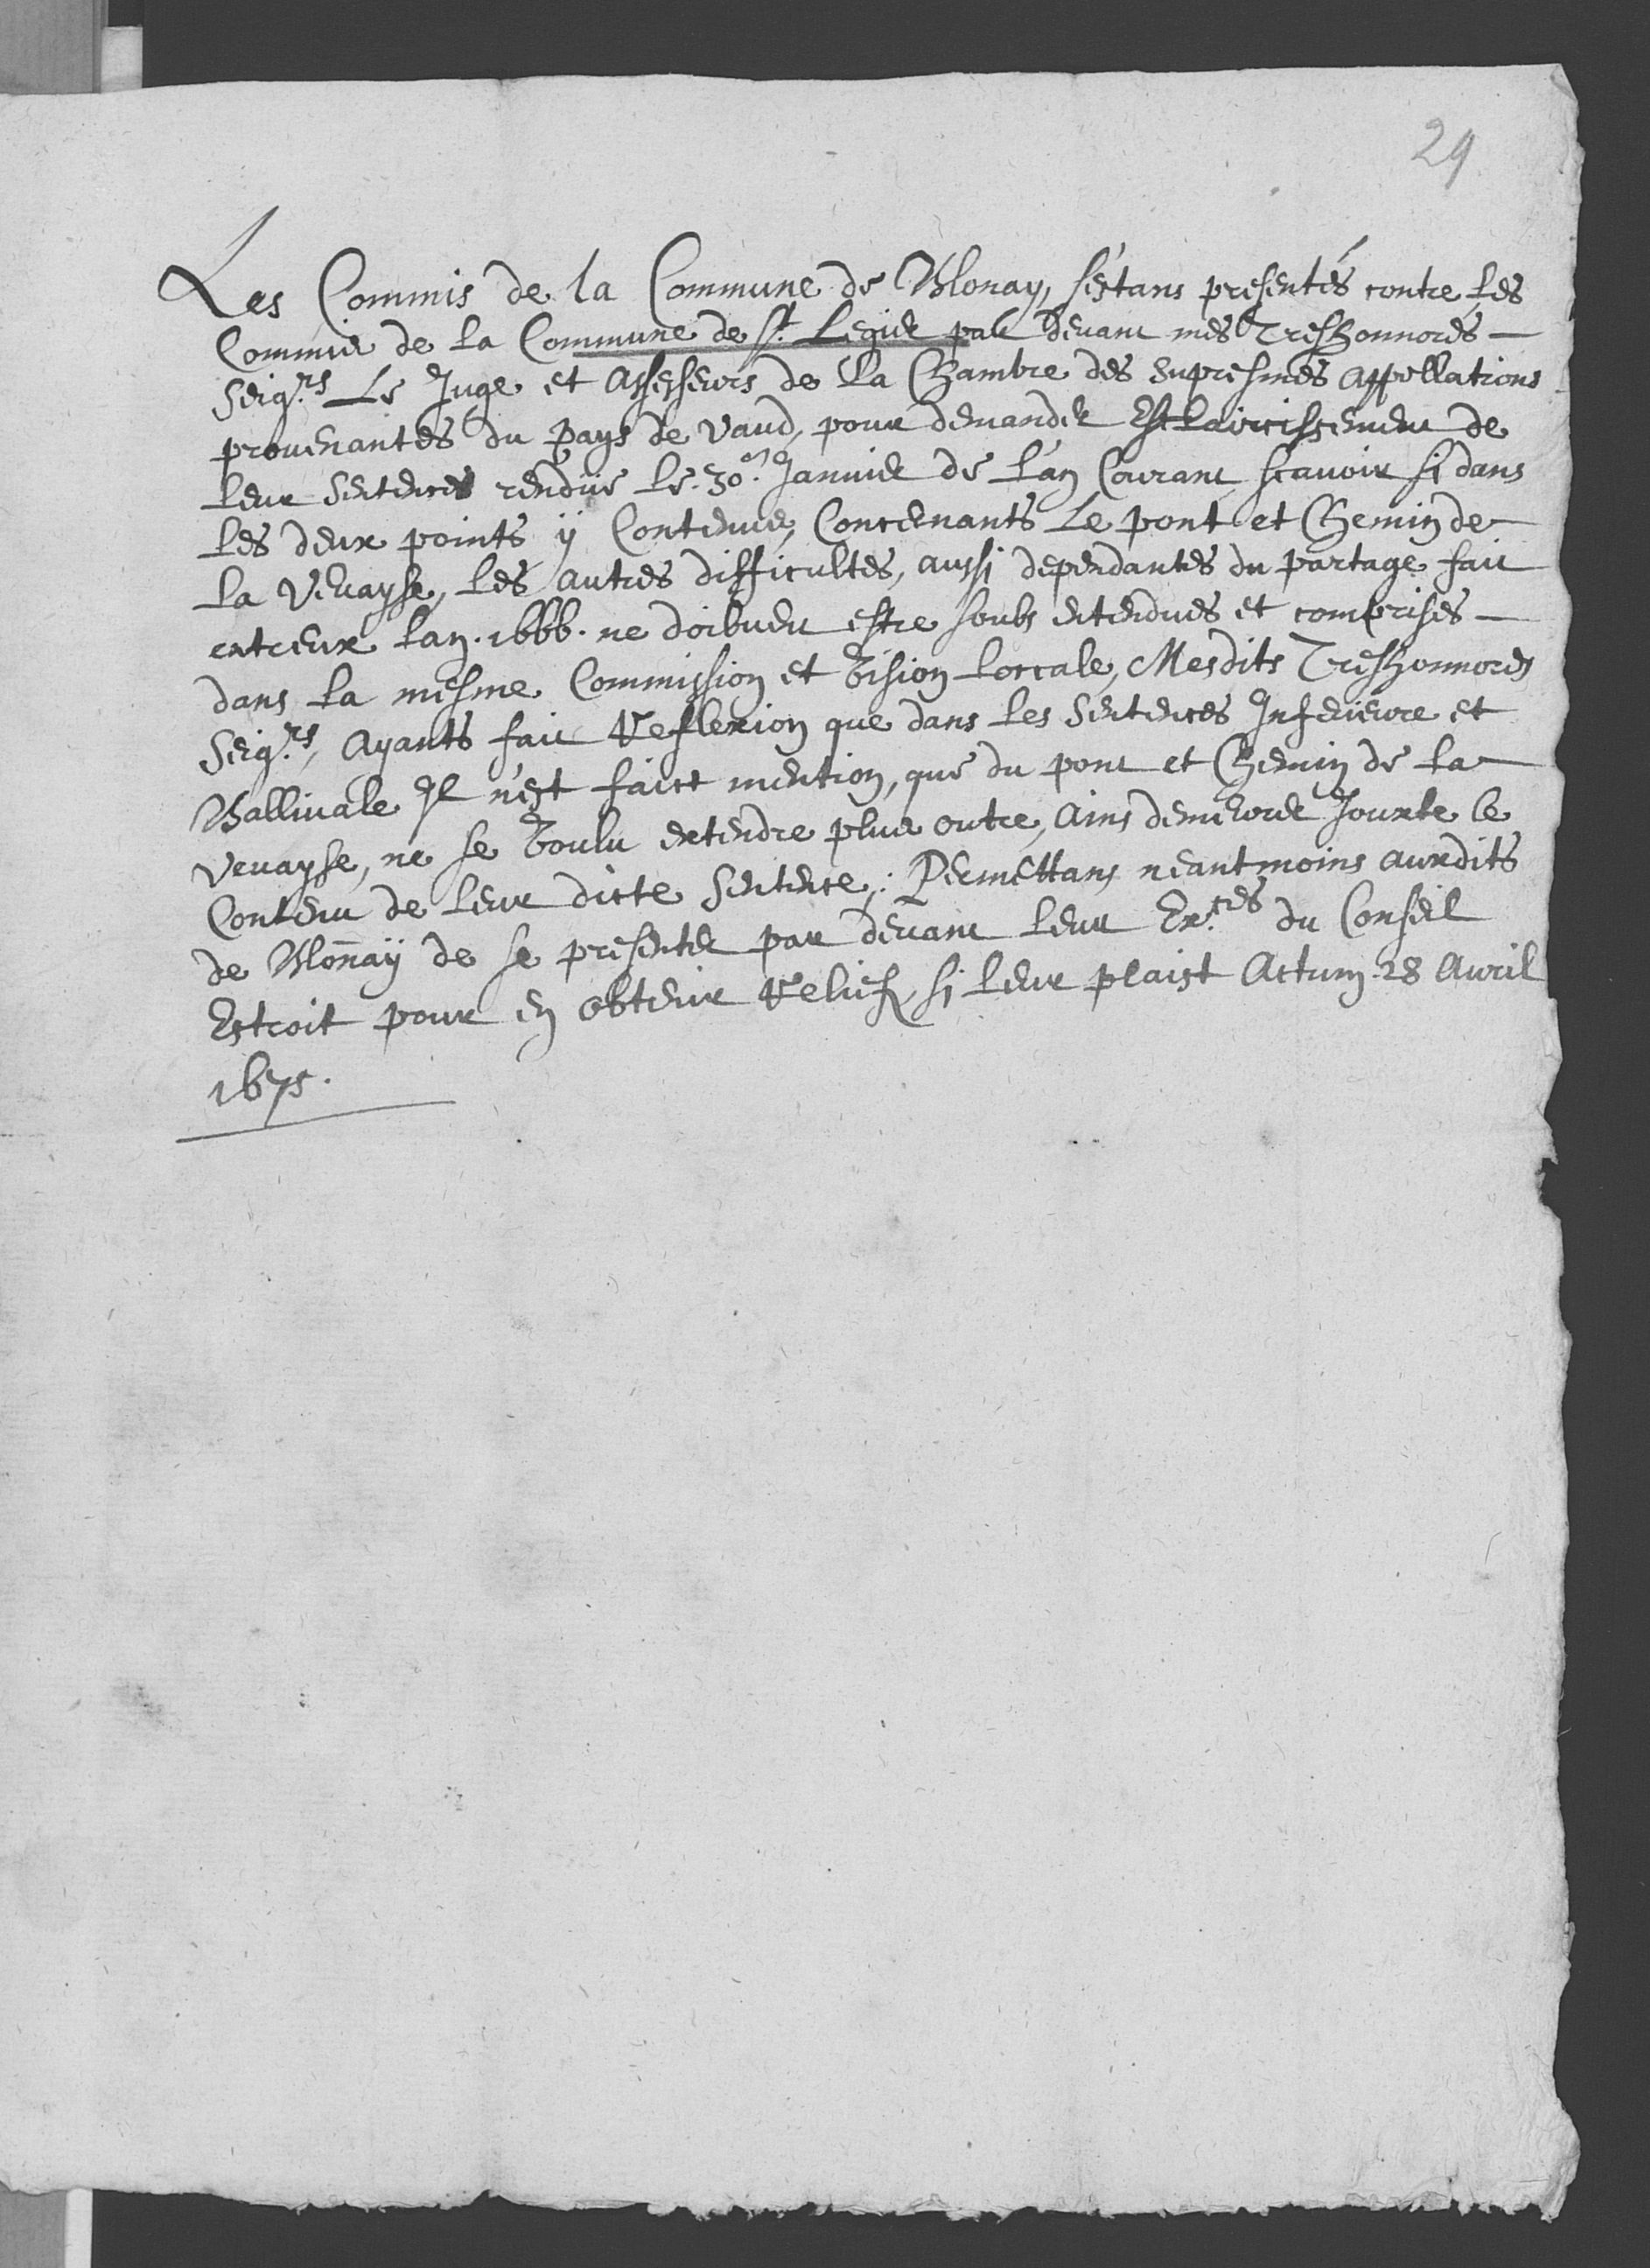 29
Les Commis de la Commune de Blonay, s'éstans presentés contre les
Commis de la Commune de S.t Legier par devant mes Treshonnorés
Seig.rs Le Juge et Assesseurs de la Chambre des supresmes Appellations
provenantes du Pays de Vaud, pour demander Esclaircissement de
leur sentences rendüe le .30.en Janvier de l'an Courant, scavoir si dans
les deux points ÿ Contenus, Concernants Le pont et Chemin de
la Vevayse, les autres difficultes, aussi dependantes du partage fait
entreeux lan .1666. ne doibvent estre soubs entendues et comprises
dans la mesme Commission et Vision Loccale, Mesdits Treshonnorés
Seig.rs, Ayants fait Reflexion que dans les Sentences Inferieure et
Ballivale Il n'est faict mention, que du pont et Chemin de la
Vevayse, ne se Voulu extendre plus outre, Ains demeurer Jouxte le
Contenu de leur dicte Sentence; Permettans neantmoins auxdits
de Blonnaÿ de se presenter par devant leur Ex.ces du Conseil
Estroit pour en obtenir Relief, si leur plaist Actum 28 Avril
1675.